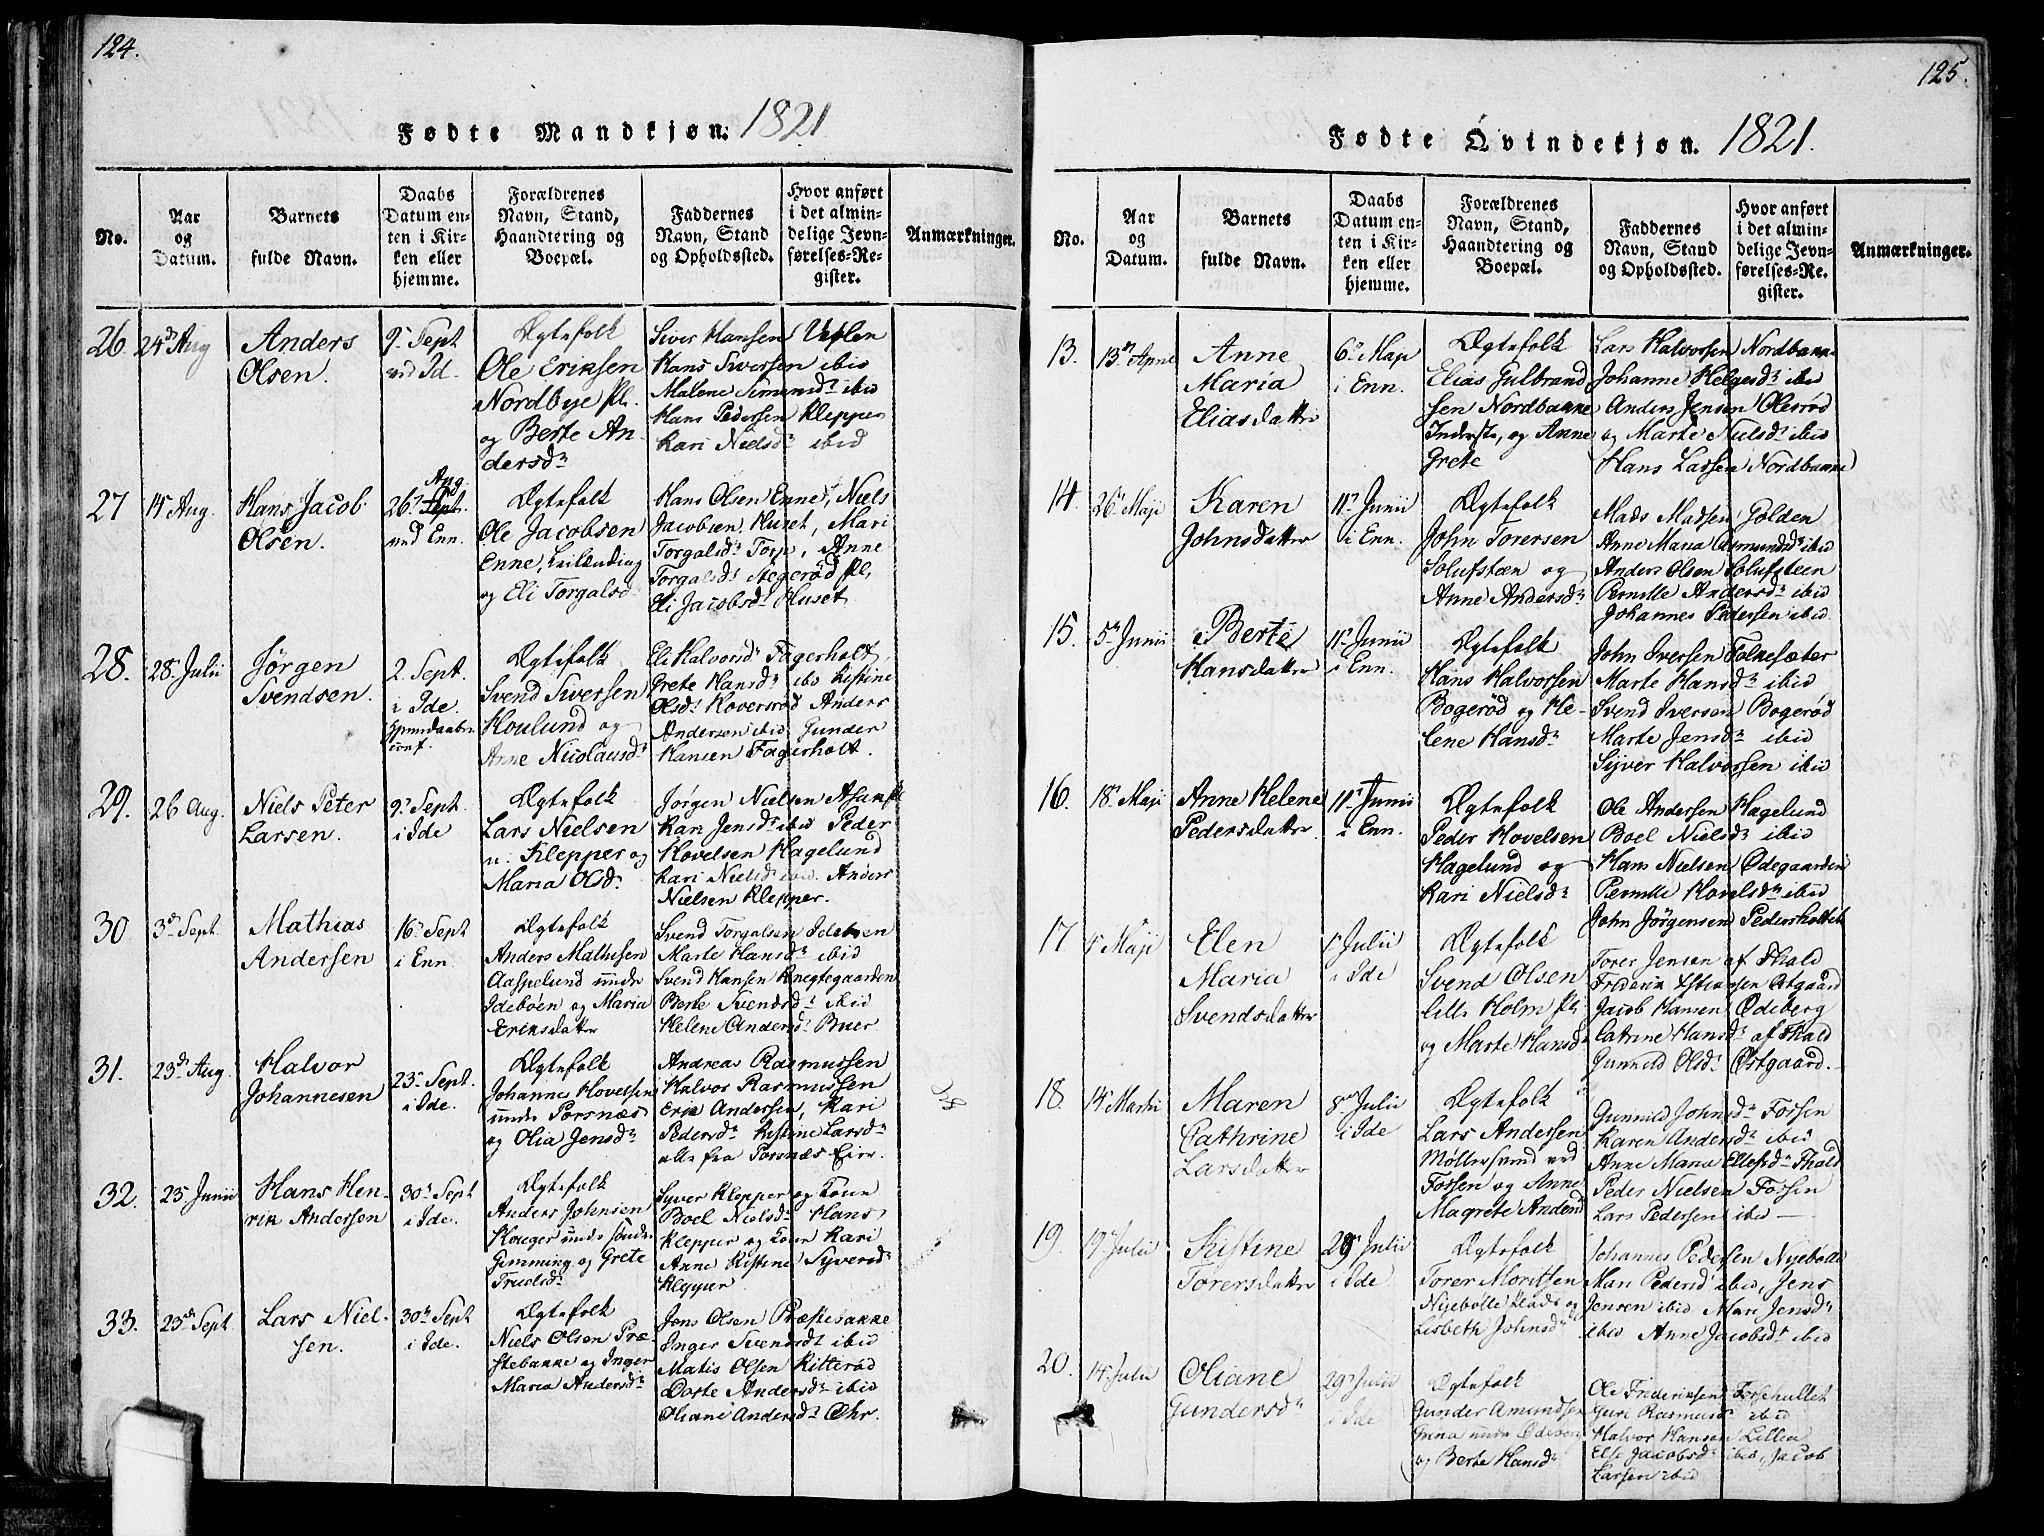 124.
Fødte Mandkjøn: 1821
No.
Aar
og
Datum.
Barnets
fulde Navn.
Daabs
Datum en-
ten i Kir-
ken eller
hjemme.
Forældrenes
Navn, Stand,
Haandtering og
Boepæl.
Faddernes
Navn, Stand
og Opholdssted.
Hvor anført
i det almin-
delige Jevn-
førelses-Re-
gister.
Anmærkninger.
26
24de Aug
Anders
Olsen.
9 Sept
ved Id.
Ægtefolk
Ole Eriksen
Nordbye Pl.
og Berte An-
dersdr
Siver Hansen Veslen
Hans Sversen ibid
Malene Simensdr ibid
Hans Pedersen Klepper
Kari Nielsdr ibid
27
15 Aug.
Hans Jacob
Olsen.
Aug.
26 Sept.
ved Enn.
Ægtefolk
Ole Jacobsen
Enne, Leilænding
og Eli Torgalsd
Hans Olsen Enne, Niels
Jacobsen Huset, Mari
Torgalsdr Torp, Anne
Torgalsdr Stegerød Pl,
Eli Jacobsdr Huset
28.
28 Julii
Jørgen
Svendsen.
2. Sept.
i Ide.
Ægtefolk
Svend Siversen
Houlund og
Anne Nicolausdr
Eli Halvorsdr Fagerholt,
Grete Hansdr ibd Kistine
Olsdr Hoversrød Anders
Andersen ibid Gunder
Hansen Fagerholt.
29.
26 Aug.
Niels Peter
Larsen.
9 Sept.
i Ide
Ægtefolk
Lars Nielsen
u. Klepper og
Maria Olsdr
Jørgen Nielsen Asak pl
Kari Jensdr ibid Peder
Hovelsen Hagelund
Kari Nielsd ibid. Anders
Nielsen Klepper.
30
3de Sept.
Mathias
Andersen
16 Sept
i Enn
Ægtefolk
Anders Mathisen
Aaspelund unde
Idebøen og Maria
Eriksdatter
Svend Torgalsen Idebøen
Marte Hansdr ibid
Svend Hansen Knegtegaarden
Berte Svendsdr ibid
Helene Andersdr Buer
31.
23de Aug.
Halvor
Johannesen
23 Sept.
i Ide.
Ægtefolk
Johannes Hovelsen
unde Torsnæs
og Olia Jensdr
Andreas Rasmussen
Halvor Rasmussen
Erik Andersen, Kari
Pedersdr Kistine Larsdr
alle fra Torsnæs Eier.
32.
25 Junii
Hans Hen-
rik Andersen
30 Sept
i Ide.
Ægtefolk
Anders Johnsen
Houger unde søndr
Gimming og Grete
Truelsdr
Syver Klepper og Kone
Boel Nielsdr Hans
Klepper og Kone Kari
Anne Kistine Syversd
Klepper
33.
23de Sept
Lars Niel-
sen.
30 Sept
i Ide.
Ægtefolk
Niels Olsen Præ-
stebakke og Inger
Maria Andersdr
Jens Olsen Præstebakke
Inger Svendsdt ibid
Matis Olsen Kitterød
Dorte Andersdr ibid
Oliane Andersdr Ohr.
125.
Fødte Qvindekjøn. 1821.
No.
Aar
og
Datum.
Barnets
fulde Navn.
Daabs
Datum en-
ten i Kir-
ken eller
hjemme.
Forældrenes
Navn, Stand,
Haandtering og
Boepæl.
Faddernes
Navn, Stand
og Opholdssted.
Hvor anført
i det almin-
delige Jevn-
førelses-Re-
gister.
Anmærkninger.
13.
13de
Anne
Maria
Eliasdatter
6 Maji
i Enn.
Ægtefolk
Elias Gulbrand
sen Nordbakke
Inderste, og Anne
Grete
Lars Halvorsen Nordbakke
Johanne Helgesdr ibid
Anders Jensen Olesrød
og Marte Nielsdr ibid
Hans Larsen Nordbakke
14.
26 Maji
Karen
Johnsdatter
11 Junii
i Enn.
Ægtefolk
John Torersen
Solufstæn og
Anne Andersdr
Mads Madsen Golden
Anne Maria Asmundsdr ibid
Anders Olsen Solufsteen
Pernille Andersdr ibid
Johannes Pedersen ibid
15.
5 Junii
Berte
Hansdatter
11 Junii
i Enn.
Ægtefolk
Hans Halvorsen
Bogerød og He-
lene Hansdr
John Iversen Folkesæter
Marte Hansdr ibid
Svend Iversen Bogerød
Marte Jensdr ibid
Syver Halvorsen ibid
16.
18 Maji
Anne Helene
Pedersdatter
11 Junii
i Enn.
Ægtefolk
Peder Hovelsen
Hagelund og
Kari Nielsdr
Ole Andersen Hagelund
Boel Nielsdr ibid
Hans Nielsen Ødegaarden
Pernille Hovelsdr ibid
John Jörgensen Pedersholtet
17
5 Maji
Elen
Maria
Svendsdatter
1 Julii
i Ide
Ægtefolk
Svend Olsen
Lille Holm pl.
og Marte Hansd
Torer Jensen af Fhald
Friderik Østgaard
Jacob Hansen Ødeberg
Catrine Hansdr af Fhald
Gunnild Olsdr Østgaard.
18.
14 Martii
Maren
Cathrine
Larsdatter
8 Julii
i Ide
Ægtefolk
Lars Andersen
Møllersund ved
Fossen og Anne
Magrete Andersd
Gunnild Johnsdr Fossen
Karen Andersdr ibid
Anne Maria Ellefsdr Fhald
Peder Nielsen Fossen
Lars Pedersen ibid
19.
19 Julii
Kistine
Torersdatter
29 Julii
i Ide
Ægtefolk
Torer Moritsen
Nyebølle Plads og
Lisbeth Johnsdr
Johannes Pedersen Nyebølle
Mari Pedersdr ibid, Jens
Jensen ibid Mari Jensdr
ibid Anne Jacobsdr ibid
20.
14 Julii
Oliane
Gundersdr
29 Julii
i Ide
Ægtefolk
Gunder Amundsen
unde Ødeberg
og Berte Hansdr
Ole Frideriksen Fossehullet
Guri Rasmusdr ibid
Halvor Hansen Lillea
Else Jacobsdr ibid, Jacob
Larsen ibid